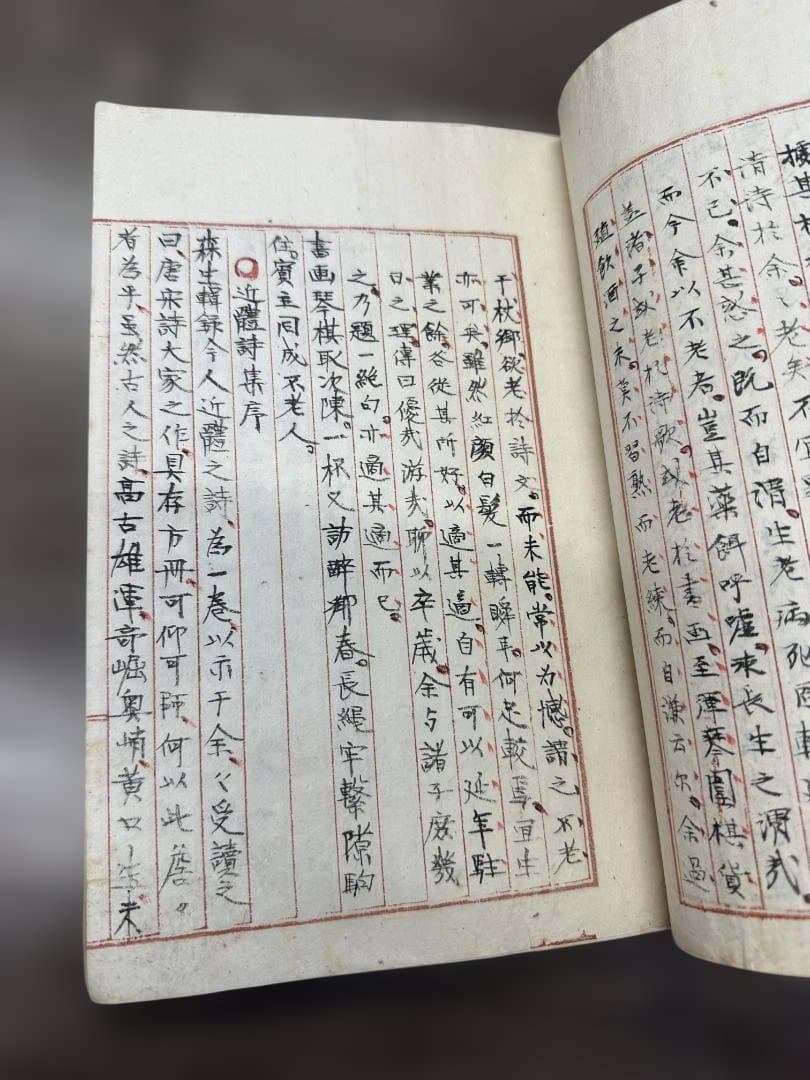 據其
清詩於余〻老矣不宜
不已余甚惑之。既而自謂。生老病死四
而今余以不老者。豈其藥餌呼嘘。求長生之謂哉。
益諸子或老於詩歌或老於書画。至彈琴圍棋貨
殖飲酒之末。莫不習熟而老練。而自謙云尔。余過
于杖鄉。欲老於詩文。而未能。常以為憾。謂之不老
亦可矣。雖然紅顔白髮一轉瞬耳。何足較焉。宜生
業之餘。各從其所好。以適其適。自有可以延年駐
日之理。傳曰優哉游哉。聊以卒歳。余与諸子庶幾
之。乃題一絶句。亦適其適而已。
書画琴棋取次陳。一杯又訪醉鄉春。長繩牢繋隙駒
住。賓主同成不老人。
○近體詩集序
森生輯録今人近體之詩。為一巻。以示于余〻受讀之
曰。唐宋詩大家之作。具存方冊。可仰可師。何以此詹〻
者為乎。虽然古人之詩。高古雄渾。奇崛奥峭。黄口生。未